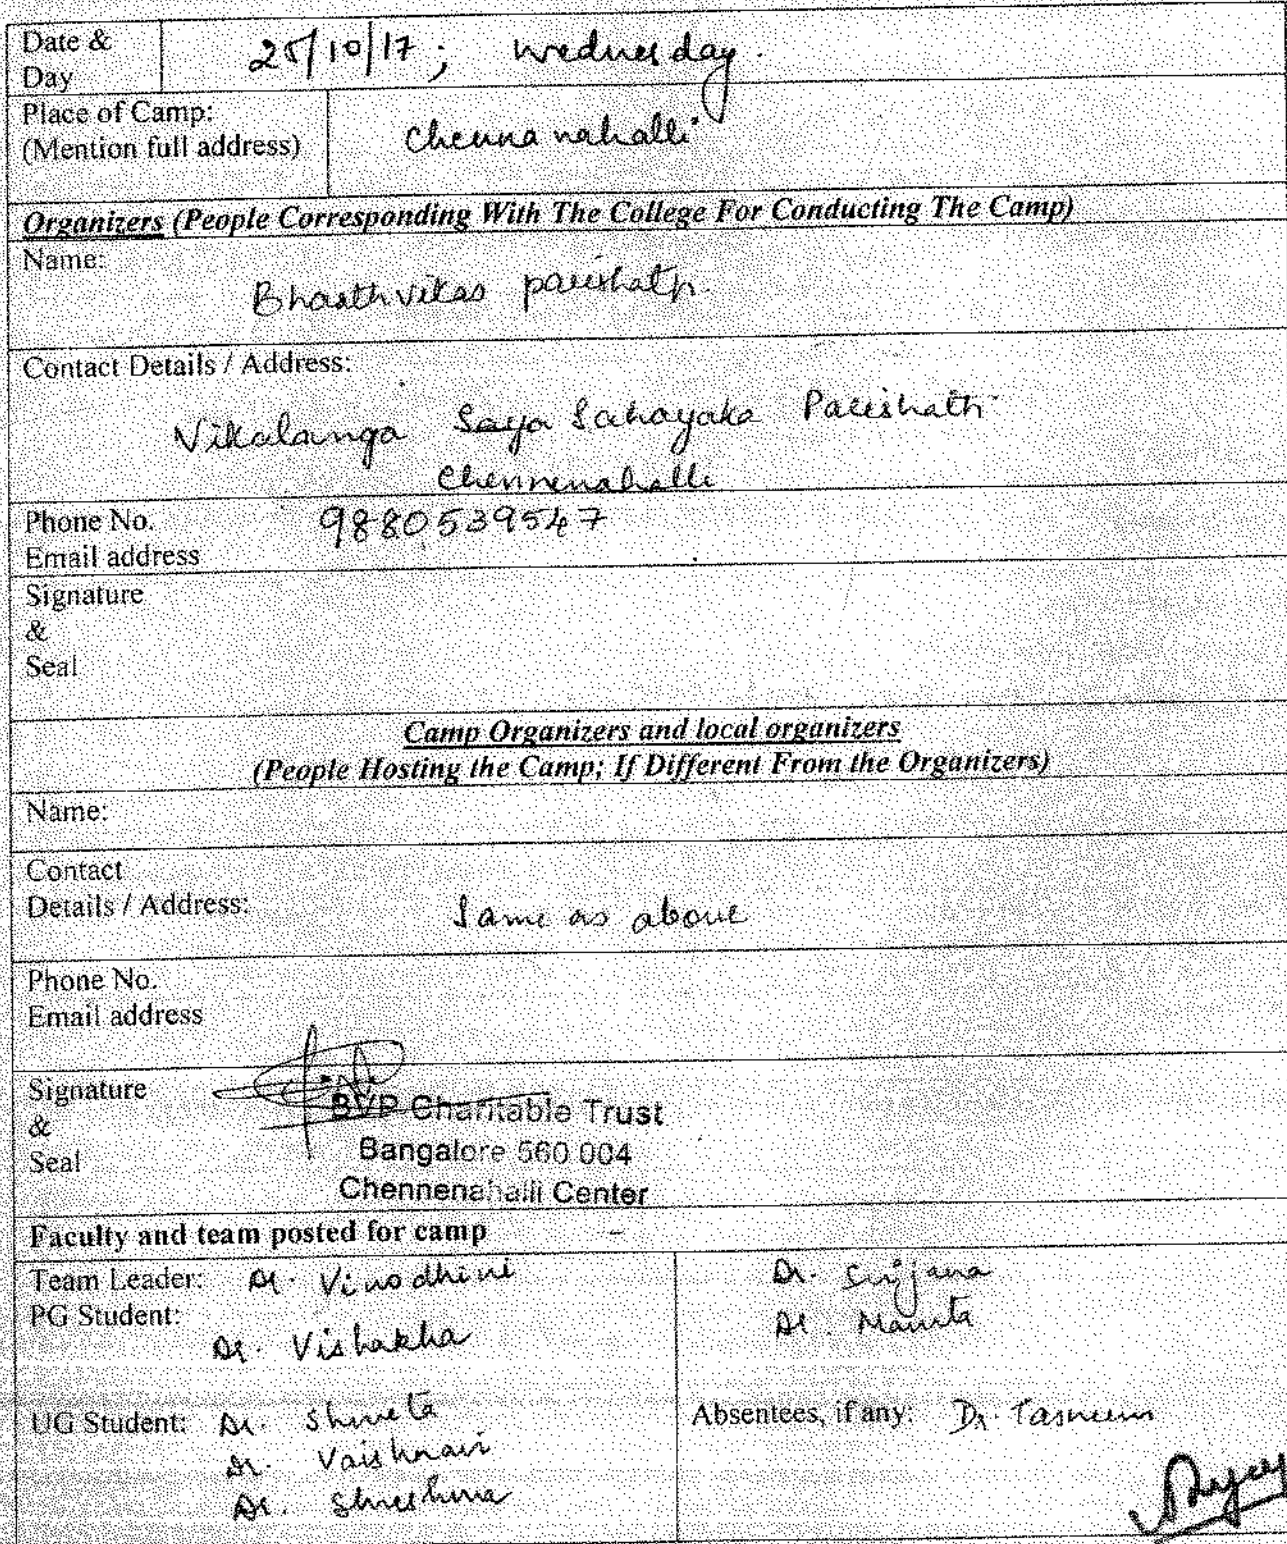 Date &
Day
25/10/17; Wednesday.
Place of Camp:
(Mention full address)
Chennanahalli
Organizers (People Corresponding With The College For Conducting The Camp)
Name:
Bharathvikas parishath.
Contact Details / Address:
Vikalanga Saya Sahayaka Parishath
Chennenahalli
Phone No. 9880539547
Email address
Signature
&
Seal
Camp Organizers and local organizers
(People Hosting the Camp; If Different From the Organizers)
Name:
Contact
Details / Address:
Same as above
Phone No.
Email address
Signature
&
Seal
BVP Charitable Trust
Bangalore 560 004
Chennenahalli Center
Faculty and team posted for camp
Team Leader: Dr. Vinodhini
PG Student:
Dr. Vishakha
Dr. Srijana
Dr. Mamta
UG Student: Dr. Shweta
Dr. Vaishnavi
Dr.
Absentees, if any: Dr. Tasneem